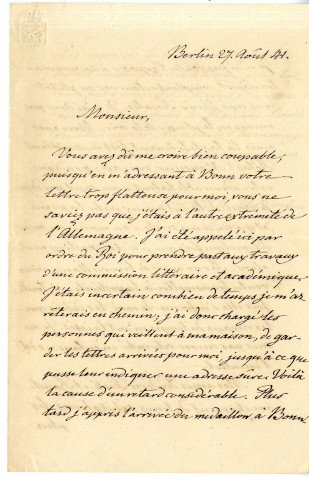 Berlin 27. Août 41.
Monsieur,
Vous avez dû me croire bien coupable,
puisqu'en m'adressant à Bonn votre
lettre trop flatteuse pour moi, vous ne
saviez pas que j'étais à l'autre extrémité de
l'Allemagne. J'ai été appelé ici par
ordre du Roi pour prendre part aux travaux
d'une commission littéraire et académique.
J'étais incertain combien de temps je m'ar
rêterais en chemin; j'ai donc chargé les
personnes qui veillent à ma maison, de gar-
der les lettres arrivées pour moi, jusqu'à ce que
pusse leur indiquer une adresse sûre. Voilà
la cause d'un retard considérable. Plus
tard j'appris l'arrivée du médaillon à Bonn.